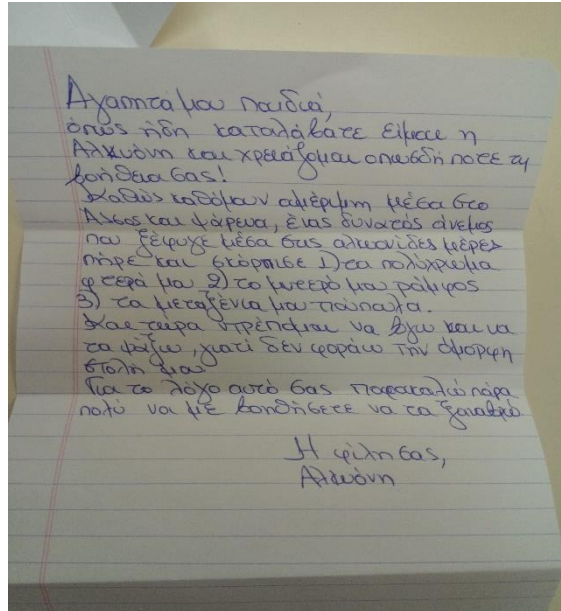 Αγαπητά μου παιδιά,
όπως ήδη καταλάβατε είμαι η
Αλκυόνη και χρειάζομαι οπωσδήποτε τη
βοήθεια σας!
Καθώς καθόμουν αμέριμνη μέσα στο
Άλσος και ψάρευα, ένας δυνατός άνεμος
που ξέφυγε μέσα στις αλκυονίδες μέρες
πήρε και σκόρπισε 1) τα πολύχρωμα
φτερά μου 2) το μυτερό μου ράμφος
3) τα μεταξένια μου πούπουλα.
Και τώρα ντρέπομαι να βγω και να
τα ψάξω, γιατί δεν φοράω την όμορφη
στολή μου
Για το λόγο αυτό σας παρακαλώ πάρα
πολύ να με βοηθήσετε να τα ξαναβρώ
Η φίλη σας,
Αλκυόνη